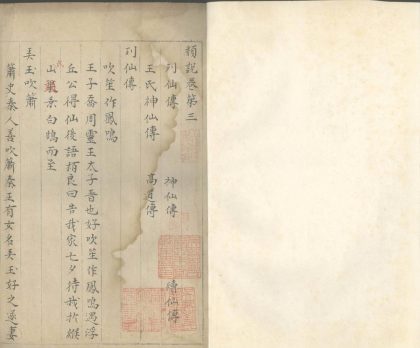 類說卷第三
列仙傳　神仙傳　續仙傳
王氏神仙傳　高道傳
列仙傳
吹笙作鳳鳴
王子喬周靈王太子晉也好吹笙作鳳鳴遇浮
丘公得仙後語栢良曰告我家七夕待我於緱
山乘白鶴而至
弄玉吹簫
簫史秦人善吹簫秦王有女名弄玉好之遂妻